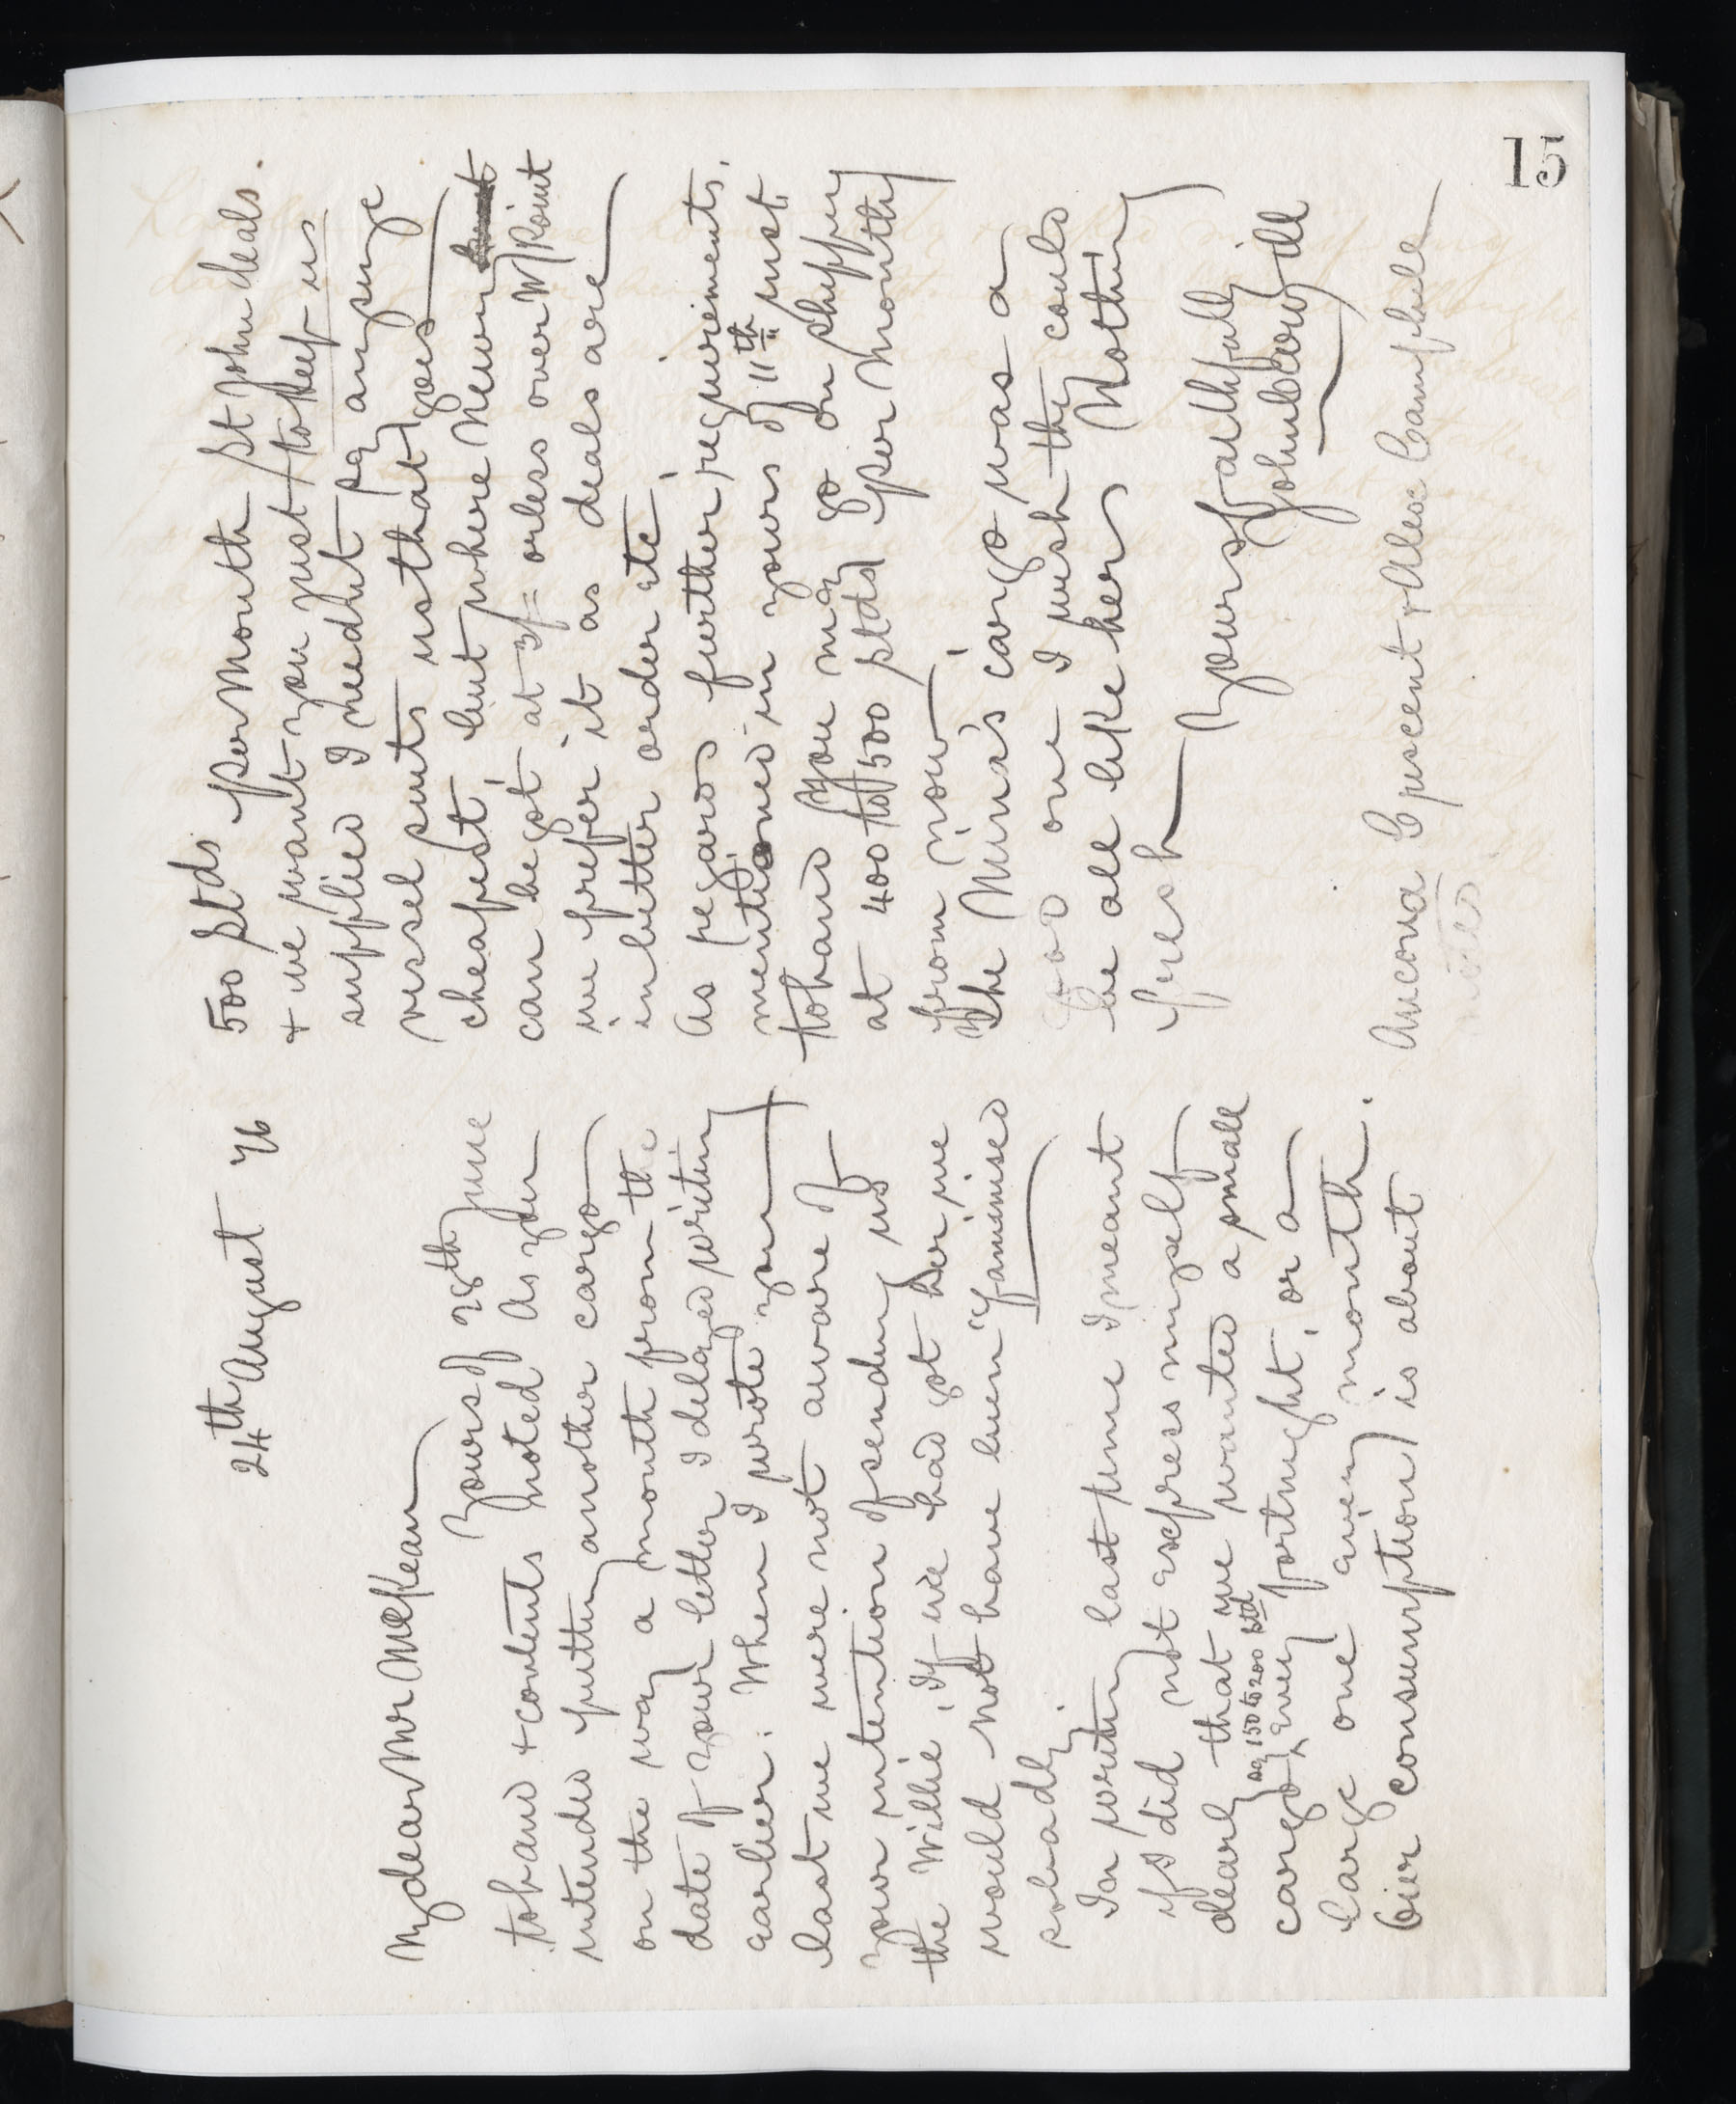 24th August 76
My dear Mr McKean
Yours of 28th June
to hand & contents noted As you
intended putting another cargo
on the way a month from the
date of your letter I delayed writing
earlier. When I wrote you
last we were not aware of
your intention of sending us
the Willie, If we had got her we
would not have been "famised
so badly.
In writing last time I meant
if I did not express myself
clearly that we wanted a small
cargo say 150 to 200 std every fortnight, or a
large one every month.
Our consumption is about
500 Stds per Month St John deals.
& we want you just to keep us
supplied I needn't say any size
vessel suits us that goes
cheapest, but where Newport
can be got at 3/= or less over W Point
we prefer it as deals are
in better order etc,
As regards further requirements,
mentioned in yours of 11th inst
to hand You may go on shipping
at 400 to 500 stds per month
from now,
The Mina's cargo was a
good one I wish they could
be all like hers Nothing
fresh
Yours faithfully
John Cowgill
Ancona Crescent & Alex Campbell
noted
15